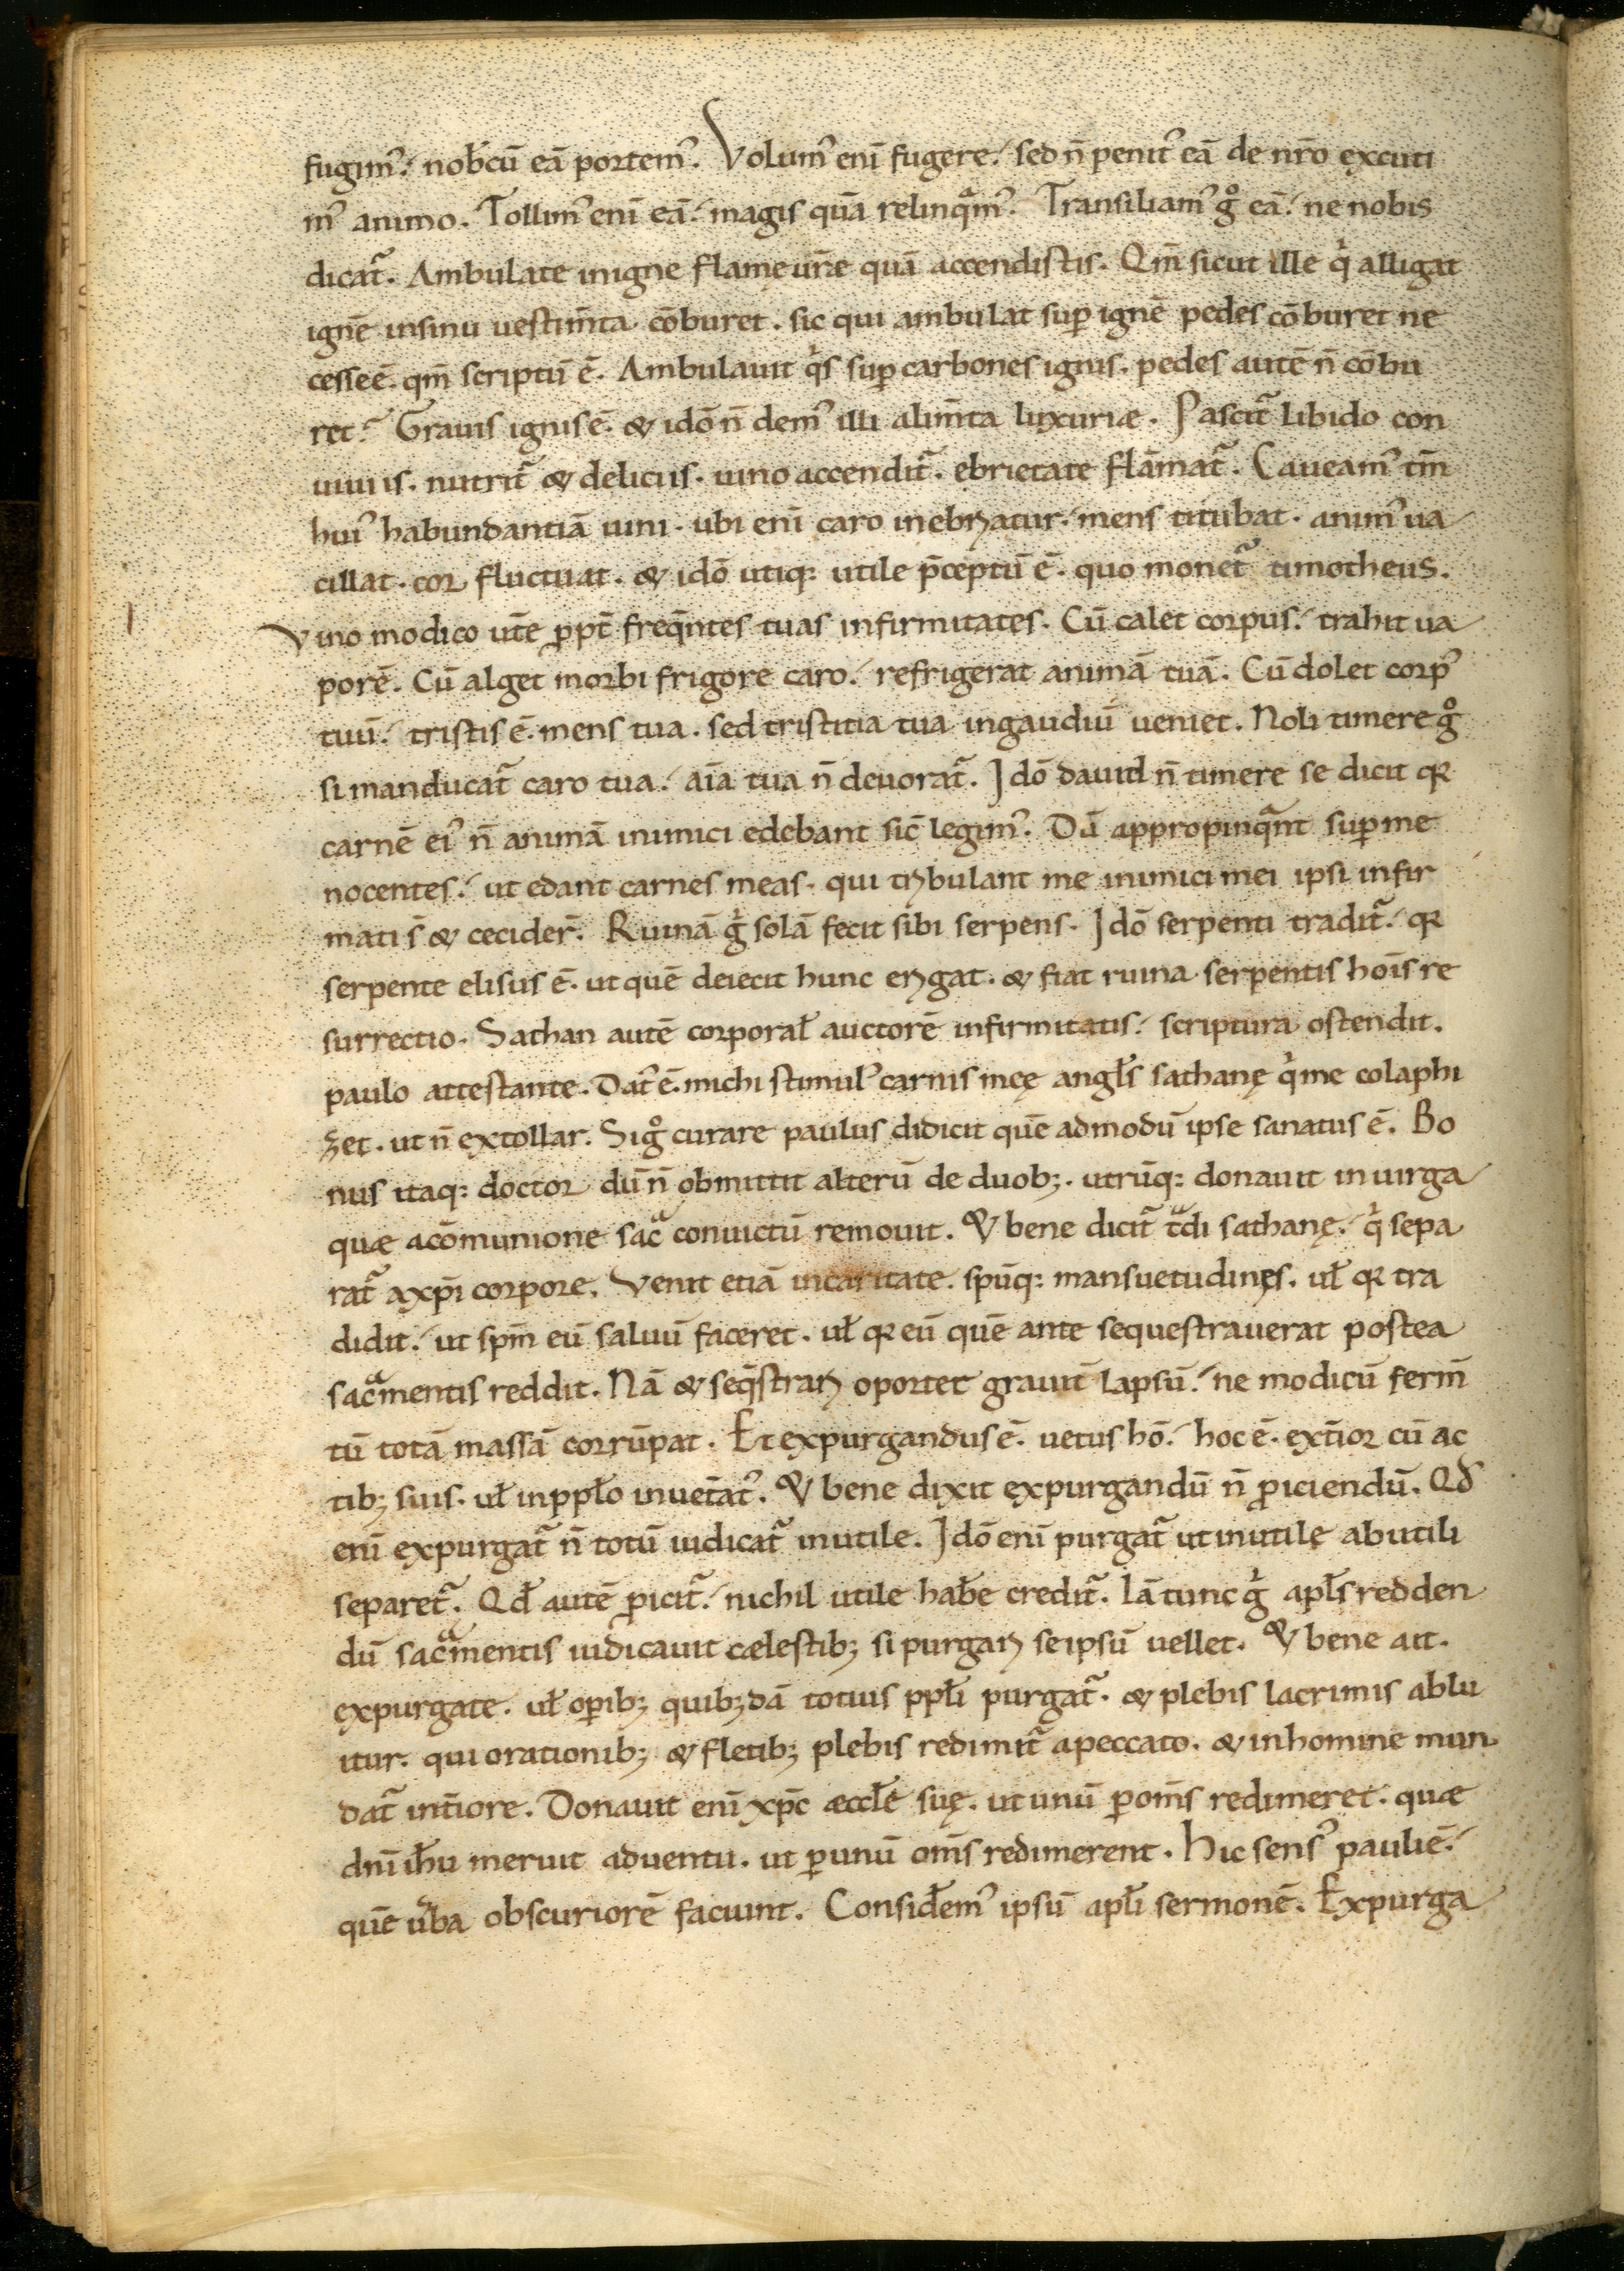 fugimꝰ. nob̄cū eā portemꝰ. Volumꝰ eni̅ fugere. sed n̄ penitꝰ eā de nr̄o excuti
mꝰ animo. Tollimꝰ eni̅ eā. magis quā relinqͣmꝰ. Transiliamꝰ gͦ eā. ne nobis
dicat᷑. Ambulate inigne flamę ur̄ę quā accendistis. Qm̄ sicut ille qͥ alligat
ignē insinu uestim̄ta cōburet. sic qui ambulat suꝑ ignē pedes cōburet ne
cesseē. qm̄ scriptū ē. Ambulauit qͥs suꝑ carbones ignis. pedes autē n̄ cōbu
ret. Grauis ignis ē. & idō n̄ demꝰ illi alim̄ta luxuriæ. Pascit᷑ libido con
uiuiis. nutrit᷑ & deliciis. uino accendit᷑. ebrietate flāmat᷑. Caueamꝰ tm̄
huiꝰ habundantiā uini. ubi eni̅ caro inebriatur. mens titubat. animꝰ ua
cillat. cor fluctuat. & idō utiq: utile p̄ceptū ē. quo monet᷑ timotheus.
Vino modico ut̄e ꝓpt̄ freq̄ntes tuas infirmitates. Cū calet corpus. trahit ua
porē. Cū alget morbi frigore caro. refrigerat animā tuā. Cū dolet corpꝰ
tuū. tristis ē. mens tua. sed tristitia tua ingaudiū ueniet. Noli timere gͦ
si manducat᷑ caro tua. aīa tua n̄ deuorat᷑. Idō dauid n̄ timere se dicit qꝛ
carnē eiꝰ n̄ animā inimici edebant sic̄ legimꝰ. Dū appropinqͣnt suꝑ me
nocentes. ut edant carnes meas. qui tribulant me inimici mei ipsi infir
mati s̄ & cecider̄. Ruinā gͥ solā fecit sibi serpens. Idō serpenti tradit᷑. qꝛ
serpente elisus ē. ut quē deiecit hunc erigat. & fiat ruina serpentis hoīs re
surrectio. Sathan autē corporał auctorē infirmitatis. scriptura ostendit.
paulo attestante. Datꝰ ē. michi stimulꝰ carnis meę angl̄s sathanę qͥ me colaphi
zet. ut n̄ extollar. Si gͦ curare paulus didicit quē admodū ipse sanatus ē. Bo
nus itaq: doctor dū n̄ obmittit alterū de duobꝫ. utrūq: donauit in uirga
quæ acōmunione sacͣ conuictū remouit. & bene dicit᷑ tͣdi sathanę. qͥ sepa
rat᷑ axp̄i corpore. Venit etiā incaritate. spūq: mansuetudinęs. uł qꝛ tra
didit. ut spm̄ eū saluū faceret. uł qꝛ eū quē ante sequestrauerat postea
sacͣmentis reddit. Nā & seq̄strari oportet grauit̄ lapsū. ne modicū ferm̄
tū totā massā corrūpat. Et expurgandus ē. uetus hō. hoc ē. ext̄ior cū ac
tibꝫ suis. uł inpplo̅ inuet̄atꝰ. & bene dixit expurgandū n̄ ꝓiciendū. Qd̄
eni̅ expurgat᷑ n̄ totū iudicat᷑ inutile. Idō eni̅ purgat᷑ ut inutile ab utili
separet᷑. Qd̄ autē ꝓicit᷑. nichil utile hab̄e credit᷑. Iā tunc gͥ apl̄s redden
dū sacͣmentis iudicauit cælestibꝫ si purgari seipsū uellet. & bene ait.
expurgate. uł oꝑibꝫ quibꝫdā totius ppl̄i purgat᷑. & plebis lacrimis ablu
itur. qui orationibꝫ & fletibꝫ plebis redimit᷑ apeccato. & inhomine mun
dat᷑ int̄iore. Donauit eni̅ xp̄c æccl̄e suę. ut unū ꝑ om̄s redimeret. quæ
dni̅ ih̄u meruit aduentū. ut ꝑ unū om̄s redimerent. Hic sensꝰ pauli ē.
quē u̅ba obscuriorē faciunt. Consid̄emꝰ ipsū apl̄i sermonē. Expurga